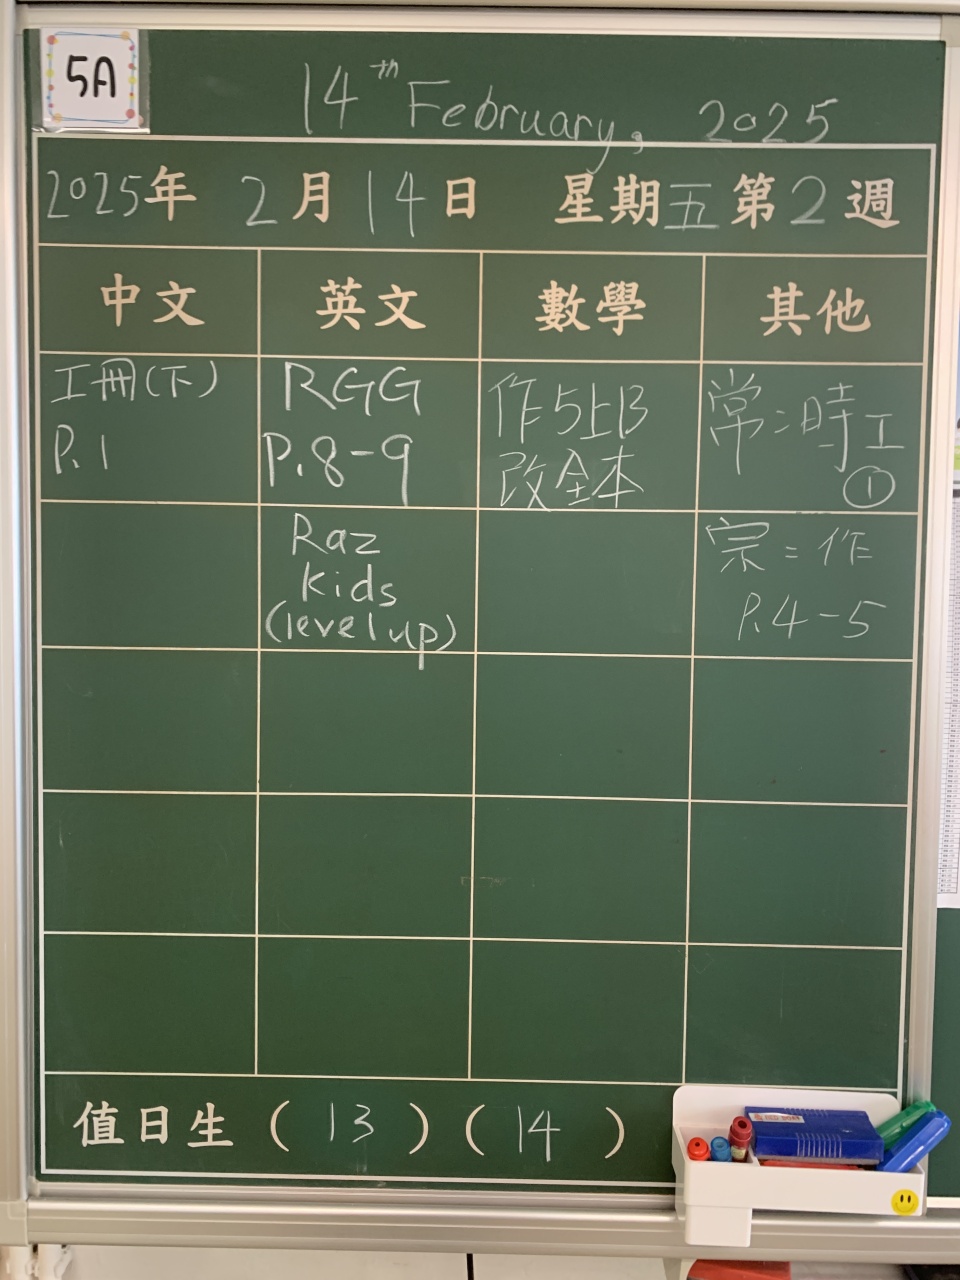 5A
14th February, 2025
2025年 2月14日 星期五第2週
中文 英文 數學 其他
工冊(下)
P.1
RGG
P.8-9
作5上B
改全本
常:時工
①
Raz
Kids
(level up)
宗:作
P.4-5
值日生 (13) (14)